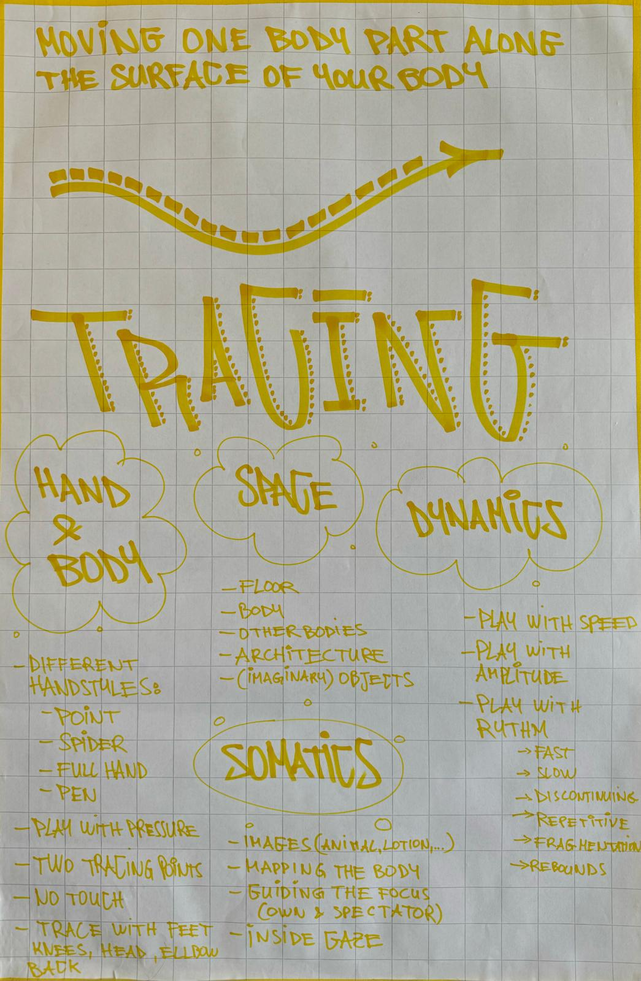 MOVING ONE BODY PART ALONG
THE SURFACE OF YOUR BODY
TRACING
HAND
&
BODY
- DIFFERENT
HANDSTYLES:
- POINT
- SPIDER
- FULL HAND
- PEN
- PLAY WITH PRESSURE
- TWO TRACING POINTS
- NO TOUCH
- TRACE WITH FEET
KNEES, HEAD, ELLBOW
BACK
SPACE
- FLOOR
- BODY
- OTHER BODIES
- ARCHITECTURE
- (IMAGINARY) OBJECTS
SOMATICS
- IMAGES (ANIMAL, LOTION,...)
- MAPPING THE BODY
- GUIDING THE FOCUS
(OWN & SPECTATOR)
- INSIDE GAZE
DYNAMICS
- PLAY WITH SPEED
- PLAY WITH
AMPLITUDE
- PLAY WITH
RYTHM
→ FAST
→ SLOW
→ DISCONTINUING
→ REPETITIVE
→ FRAGMENTATION
→ REBOUNDS